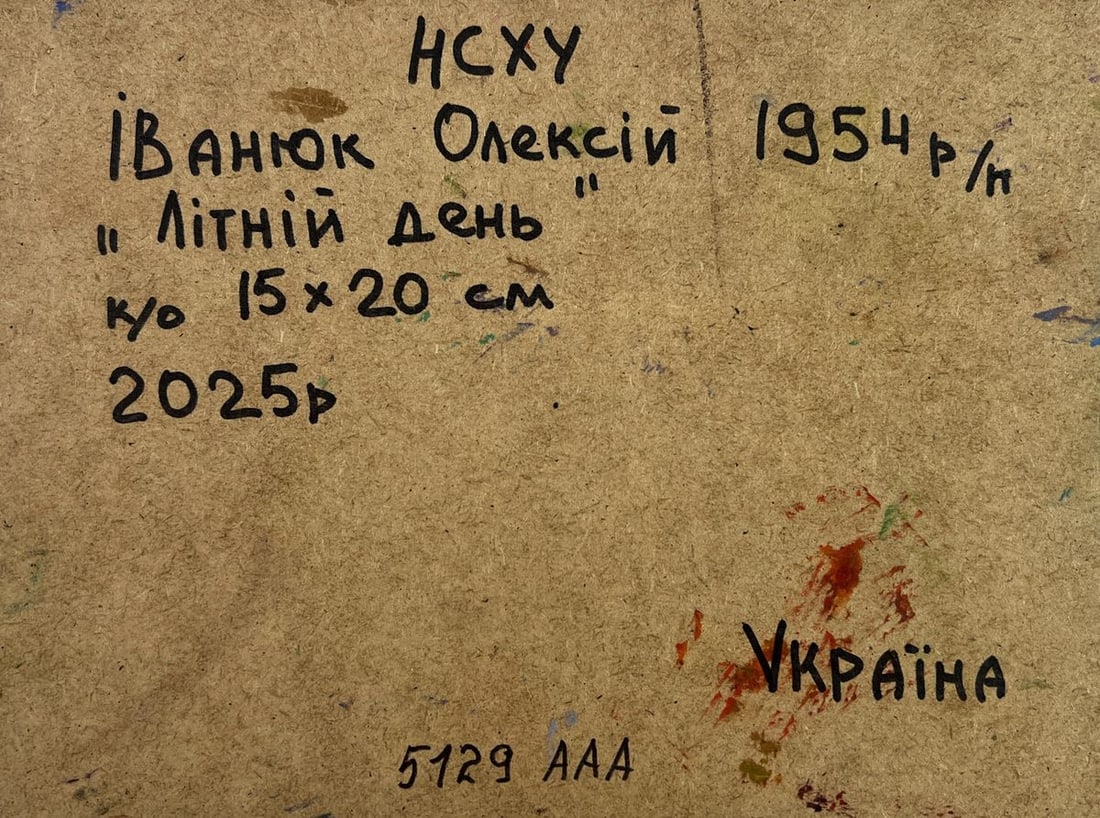 НСХУ
Іванюк Олексій 1954 р/н
„Літній день"
к/о 15х20 см
2025р
Україна
5129 ААА